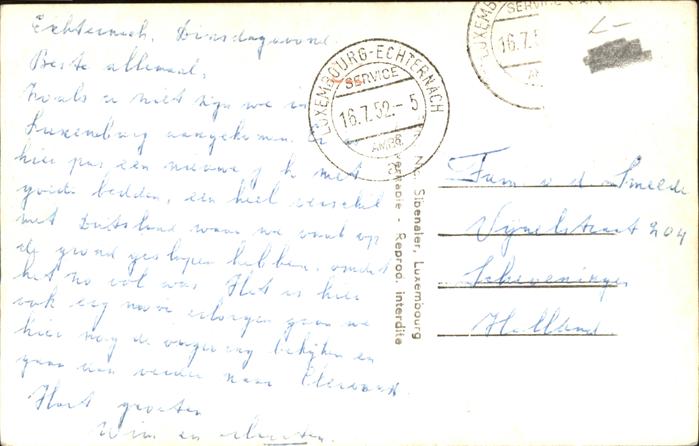 Echternach, Dinsdagavond
Beste allemaal,
Zoals u ziet zijn we in
Luxemburg aangekomen.
hier pas een nieuwe j.h. met
goede bedden, een heel verschil
met Duitsland waar we vaak op
de grond geslapen hebben, omdat
het zo vol was. Het is hier
ook erg mooi morgen gaan we
hier nog de omgeving bekijken en
gaan dan verder naar Clervaux
Hart. groeten
Wim en
LUXEMBOURG-ECHTERNACH
SERVICE
16.7.52.-5
AMB.
LUXEMB
SERVICE
16.7.5
AM
N. Sibenaler, Luxembourg
Reprod. interdite
Fam v d Smelde
Vijzelstraat 204
Scheveningen
Holland